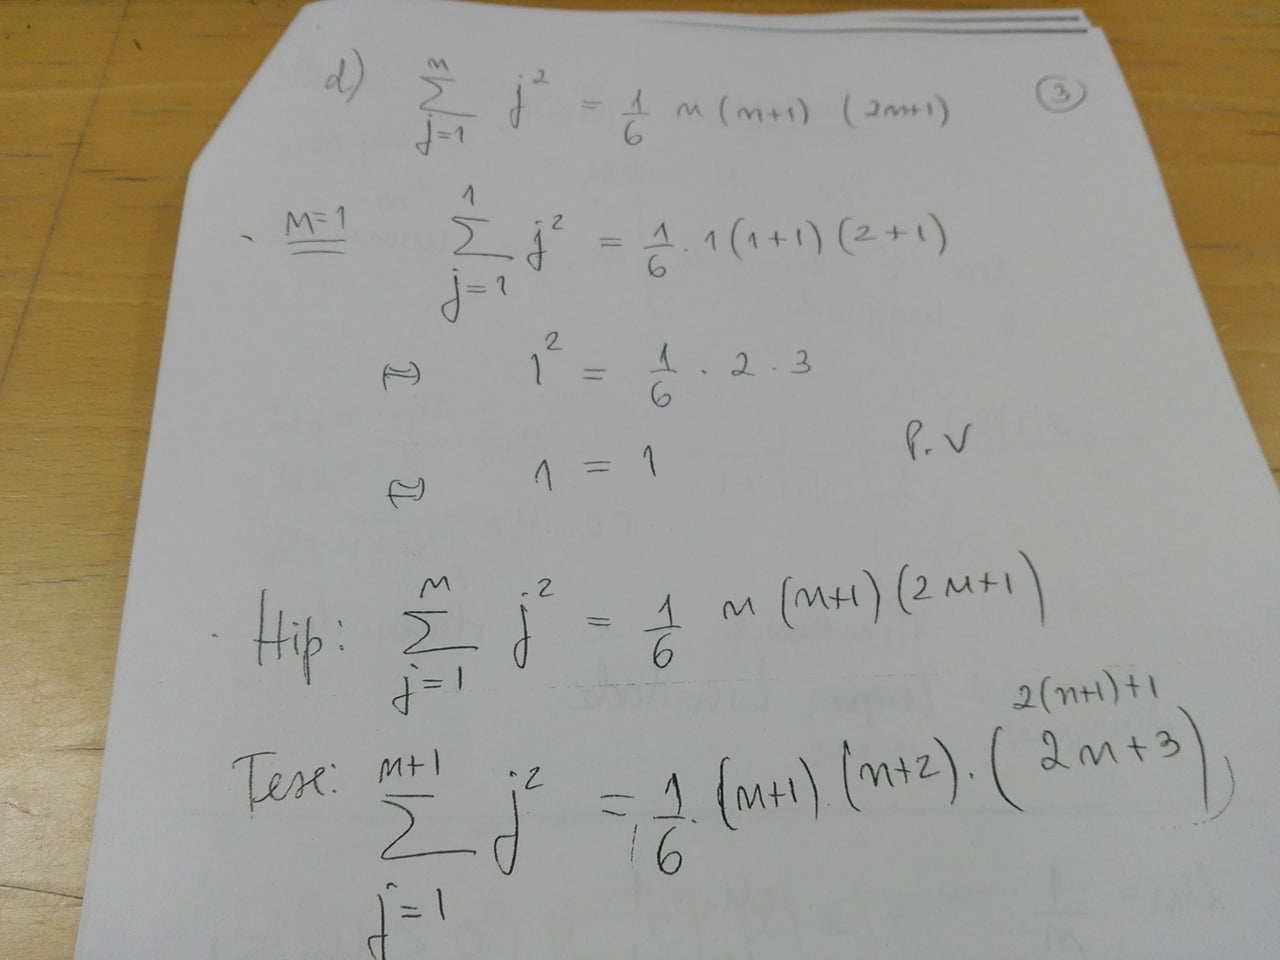 d) ∑_{j=1}^{n} j² = 1/6 n (n+1) (2n+1) ③
. n=1 ∑_{j=1}^{1} j² = 1/6 . 1(1+1) (2+1)
⇔ 1² = 1/6 . 2 . 3
⇔ 1 = 1 P.V
. Hip: ∑_{j=1}^{n} j² = 1/6 n (n+1) (2n+1)
2(n+1)+1
Tese: ∑_{j=1}^{n+1} j² = 1/6 . (n+1) . (n+2) . (2n+3)